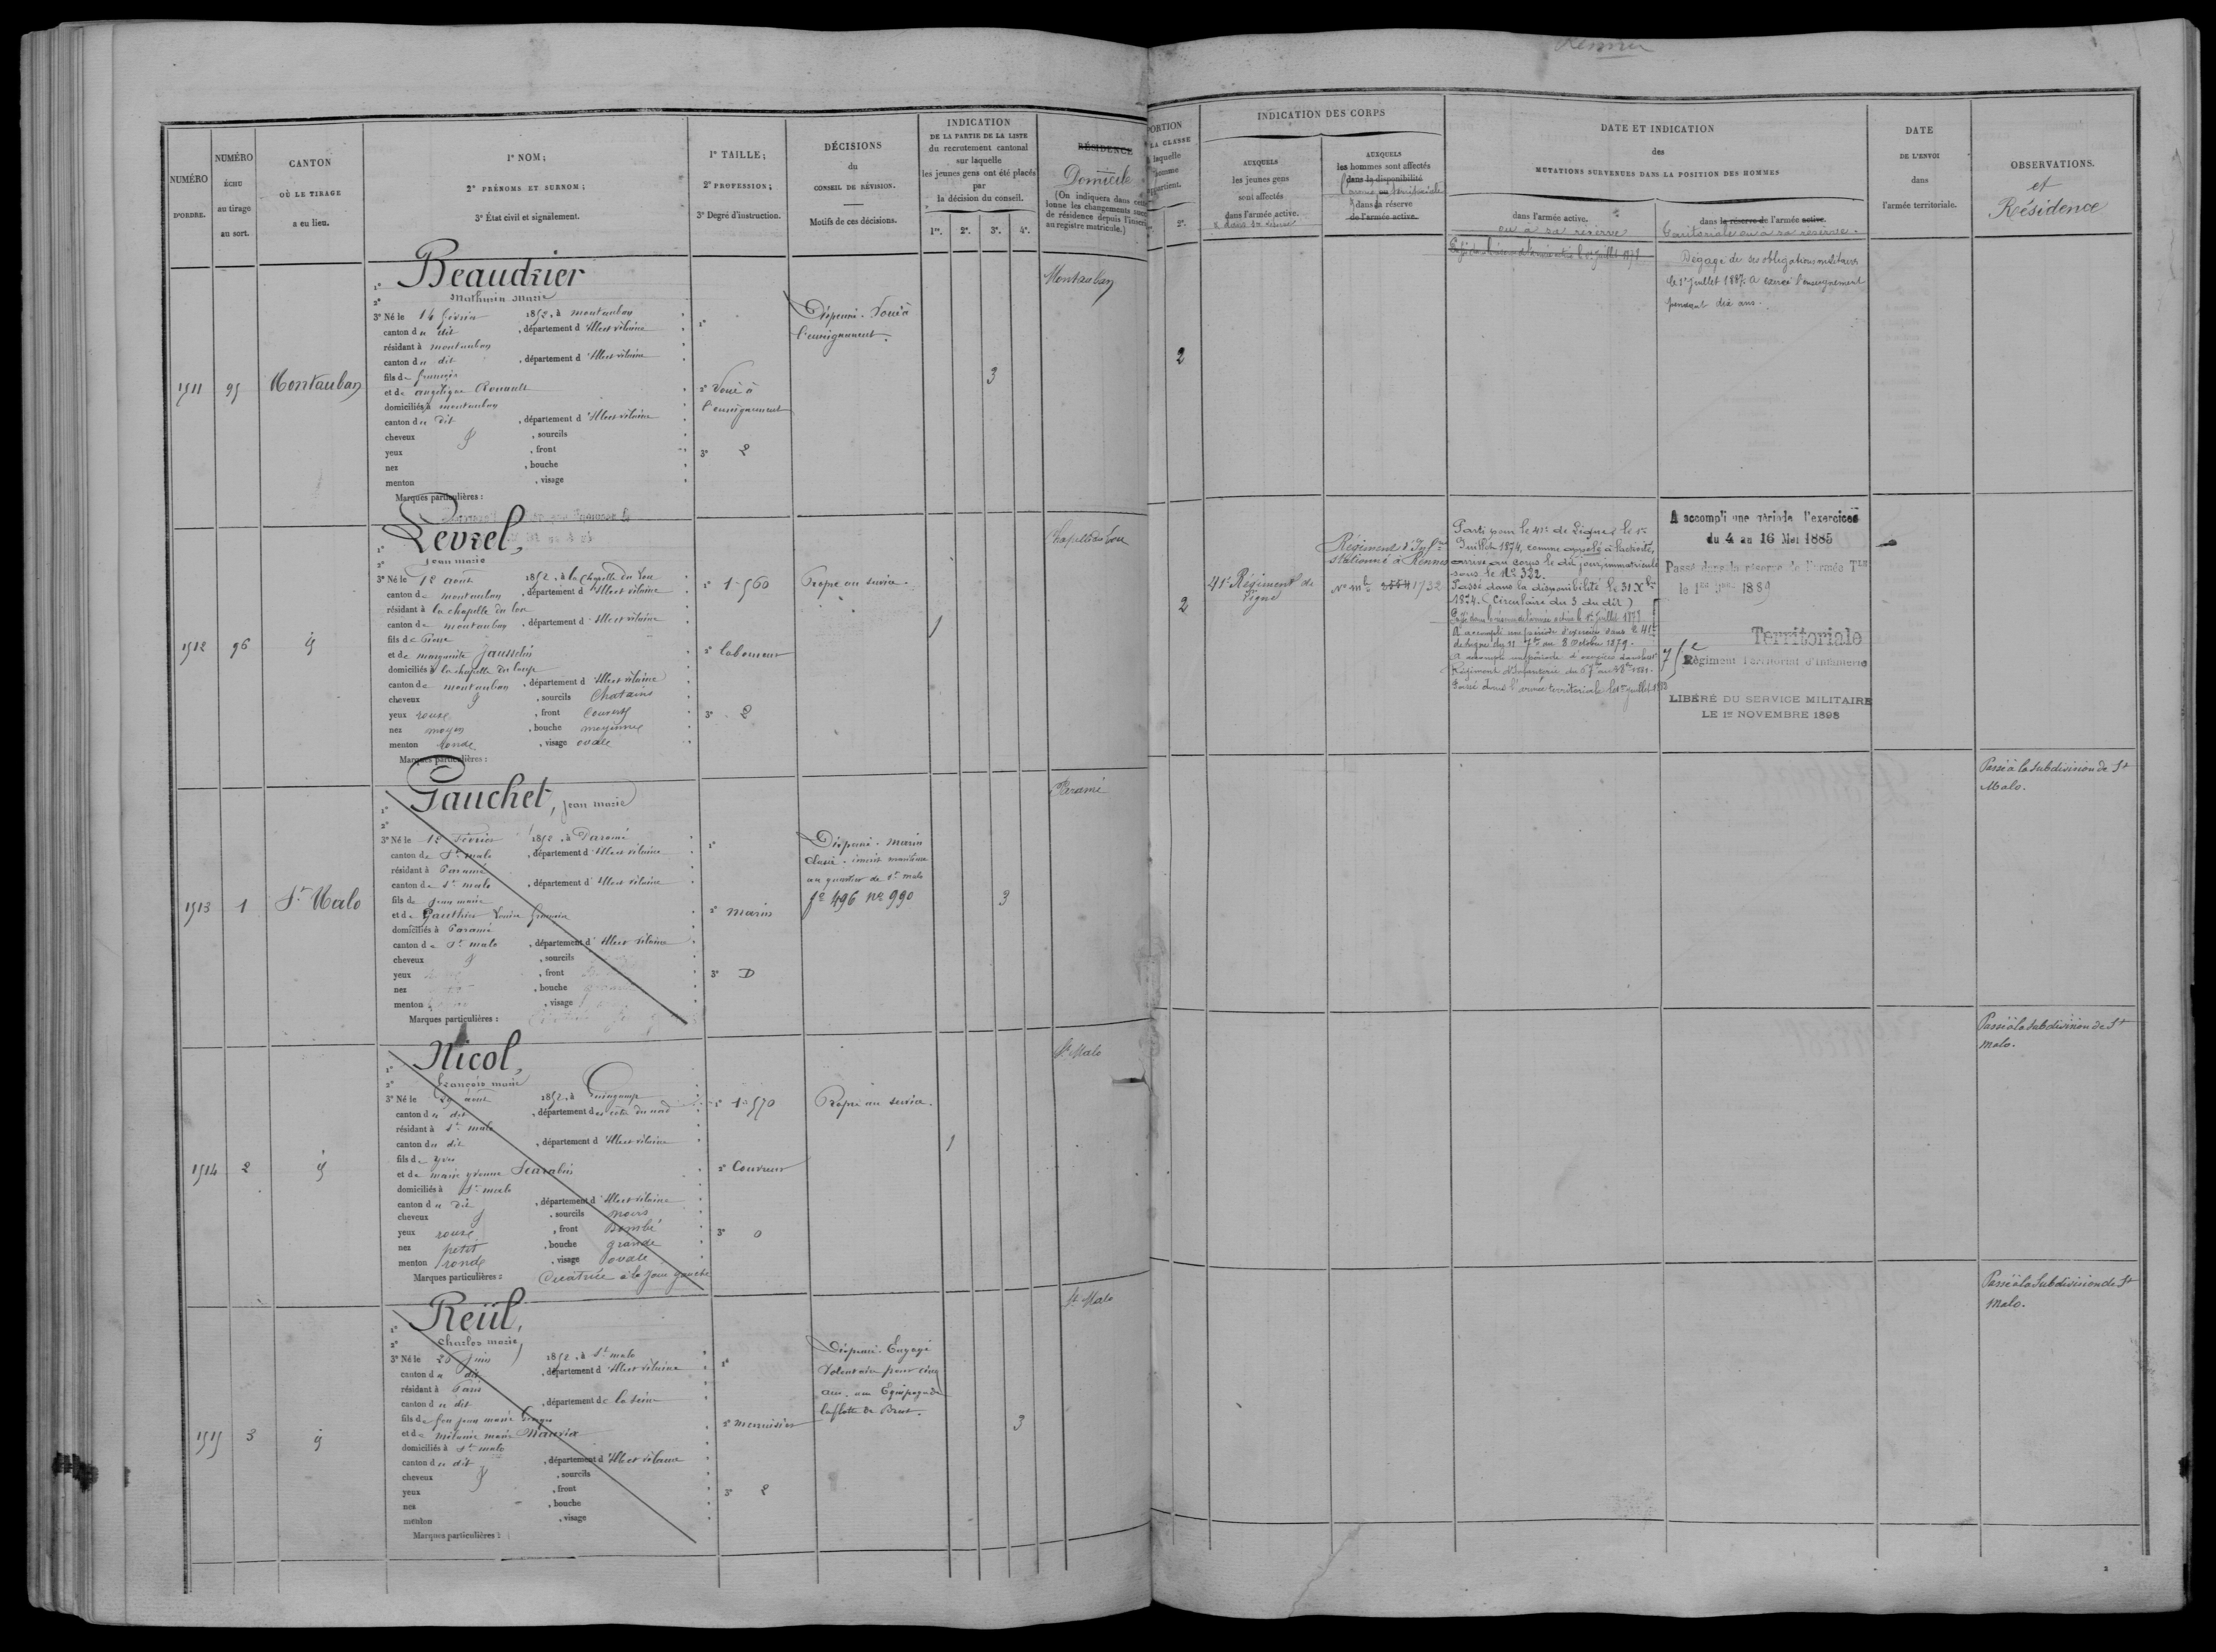 Rennes
NUMÉRO
D'ORDRE.
NUMÉRO
ÉCHU
au tirage
au sort.
CANTON
OÙ LE TIRAGE
a eu lieu.
1º NOM;
2º PRÉNOMS ET SURNOM;
3º État civil et signalement.
1º TAILLE;
2º PROFESSION;
3º Degré d'instruction.
DÉCISIONS
du
CONSEIL DE RÉVISION.
Motifs de ces décisions.
INDICATION
DE LA PARTIE DE LA LISTE
du recrutement cantonal
sur laquelle
les jeunes gens ont été placés
par
la décision du conseil.
1re. 2e. 3e. 4e.
RÉSIDENCE
Domicile
(On indiquera dans cette
lonne les changements
de résidence depuis
au registre matricule.)
PORTION
LA CLASSE
laquelle
homme
appartient.
2e.
INDICATION DES CORPS
AUXQUELS
les jeunes gens
sont affectés
dans l'armée active.
AUXQUELS
les hommes sont affectés
dans la disponibilité
dans la réserve
de l'armée active.
DATE ET INDICATION
des
MUTATIONS SURVENUES DANS LA POSITION DES HOMMES
dans l'armée active.
ou à sa réserve
dans la réserve de l'armée active.
territoriale ou à sa réserve.
DATE
DE L'ENVOI
dans
l'armée territoriale.
OBSERVATIONS.
et
Résidence
1511
95
Montauban
1º Beaudrier
2º Mathurin Marie
3º Né le 14 février 1852, à montauban
canton du dit, département d'Ille et vilaine
résidant à montauban
canton du dit, département d'Ille et vilaine
fils de françois
et de angélique Rouault
domiciliés à montauban
canton du dit, département d'Ille et vilaine
cheveux, sourcils
yeux, front
nez, bouche
menton, visage
Marques particulières :
1º
2º Voué à
l'enseignement
3º 2
Dispensé. Voué à
l'enseignement.
3
Montauban
2
Passé dans la réserve de l'armée active le 1er juillet 1879
Dégagé de ses obligations militaires
le 1er Juillet 1887. A exercé l'enseignement
pendant dix ans.
1512
96
id
1º Levrel,
2º Jean marie
3º Né le 12 août 1852, à la Chapelle du Lou
canton de montauban, département d'Ille et vilaine
résidant à la chapelle du lou
canton de montauban, département d'Ille et vilaine
fils de Pierre
et de marguerite Jausselin
domiciliés à la chapelle du loup
canton de montauban, département d'Ille et vilaine
cheveux, sourcils Chatains
yeux roux, front Couvert
nez moyen, bouche moyenne
menton ronde, visage ovale
Marques particulières :
1º 1m 560
2º laboureur
3º 2
Propre au service.
1
Chapelle du Lou
2
41e Régiment de
ligne
Régiment d'Infrie
Stationné à Rennes
No mle 1732
Parti pour le 41e de Ligne le 1er
Juillet 1874, comme appelé à l'activité,
arrivé au corps le dit jour, immatriculé
sous le No 332.
Passé dans la disponibilité le 31 Xbre
1874. (Circulaire du 3 du dit)
Passé dans la réserve de l'armée active le 1er juillet 1879
A accompli une période d'exercices dans le 41e
de ligne du 11 7bre au 8 Octobre 1879.
A accompli une période d'exercices dans le
Régiment d'Infanterie du 6 7bre au 3 8bre 1881.
Passé dans l'armée territoriale le 1er juillet 1883
A accompli une période d'exercices
du 4 au 16 Mai 1885
Passé dans la réserve de l'armée Tle
le 1er 9bre 1889
Territoriale
75e
Régiment Territorial d'Infanterie
LIBÉRÉ DU SERVICE MILITAIRE
LE 1er NOVEMBRE 1898
1513
1
St Malo
1º Gauchet, jean marie
2º
3º Né le 12 février 1852, à Paramé
canton de St malo, département d'Ille et vilaine
résidant à Paramé
canton de St malo, département d'Ille et vilaine
fils de jean marie
et de Gauthier Louise françoise
domiciliés à Paramé
canton de St malo, département d'Ille et vilaine
cheveux, sourcils
yeux, front
nez, bouche
menton, visage
Marques particulières :
1º
2º marin
3º D
Dispensé. marin
classé. inscrit maritime
au quartier de St malo
fo 496 no 990
3
Paramé
Passé à la subdivision de St
Malo.
1514
2
id
1º Nicol,
2º François marie
3º Né le 29 août 1852, à Guingamp
canton du dit, département des côtes du nord
résidant à St malo
canton du dit, département d'Ille et vilaine
fils de yves
et de marie yvonne
domiciliés à St malo
canton du dit, département d'Ille et vilaine
cheveux, sourcils noirs
yeux roux, front Bombé
nez petit, bouche grande
menton ronde, visage ovale
Marques particulières : Cicatrice à la joue gauche
1º 1m 570
2º Couvreur
3º 0
Propre au service.
1
St Malo
Passé à la subdivision de St
malo.
1515
3
id
1º Reüil,
2º Charles marie
3º Né le 25 juin 1852, à St malo
canton du dit, département d'Ille et vilaine
résidant à Paris
canton du dit, département de la Seine
fils de feu jean marie
et de mélanie marie
domiciliés à St malo
canton du dit, département d'Ille et vilaine
cheveux, sourcils
yeux, front
nez, bouche
menton, visage
Marques particulières :
1º
2º menuisier
3º 2
Dispensé. Engagé
Volontaire pour cinq
ans. aux Equipages de
la flotte de Brest.
3
St Malo
Passé à la subdivision de St
Malo.
2